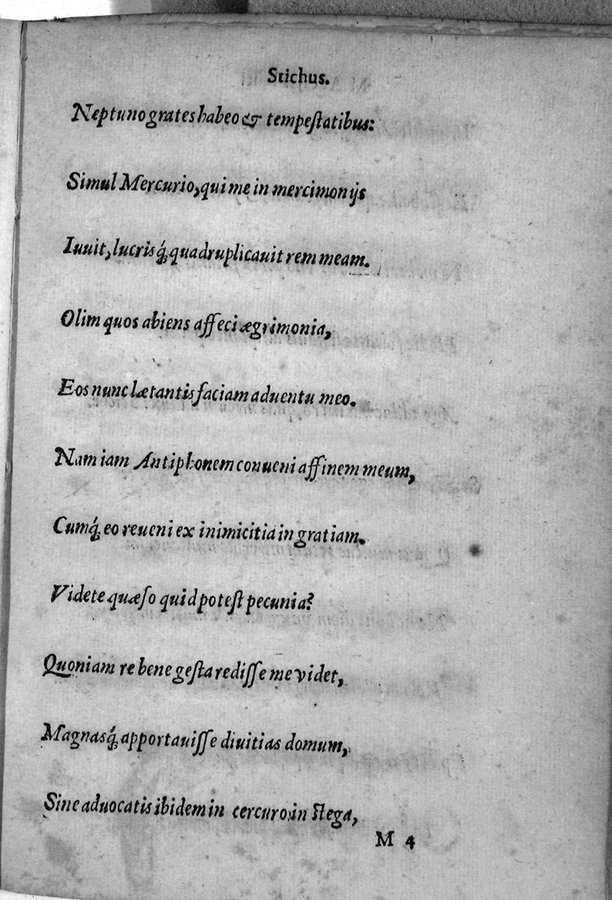 Stichus.
Neptuno grates habeo & tempeſtatibus:
Simul Mercurio, qui me in mercimonijs
Iuuit, lucrisq́; quadruplicauit rem meam.
Olim quos abiens affeci ægrimonia,
Eos nunc lætantis faciam aduentu meo.
Nam iam Antiphonem conueni affinem meum,
Cumq́; eo reueni ex inimicitia in gratiam.
Videte quæſo quid poteſt pecunia?
Quoniam re bene geſta rediſſe me videt,
Magnasq́; apportauiſſe diuitias domum,
Sine aduocatis ibidem in cercuro, in ſtega,
M 4